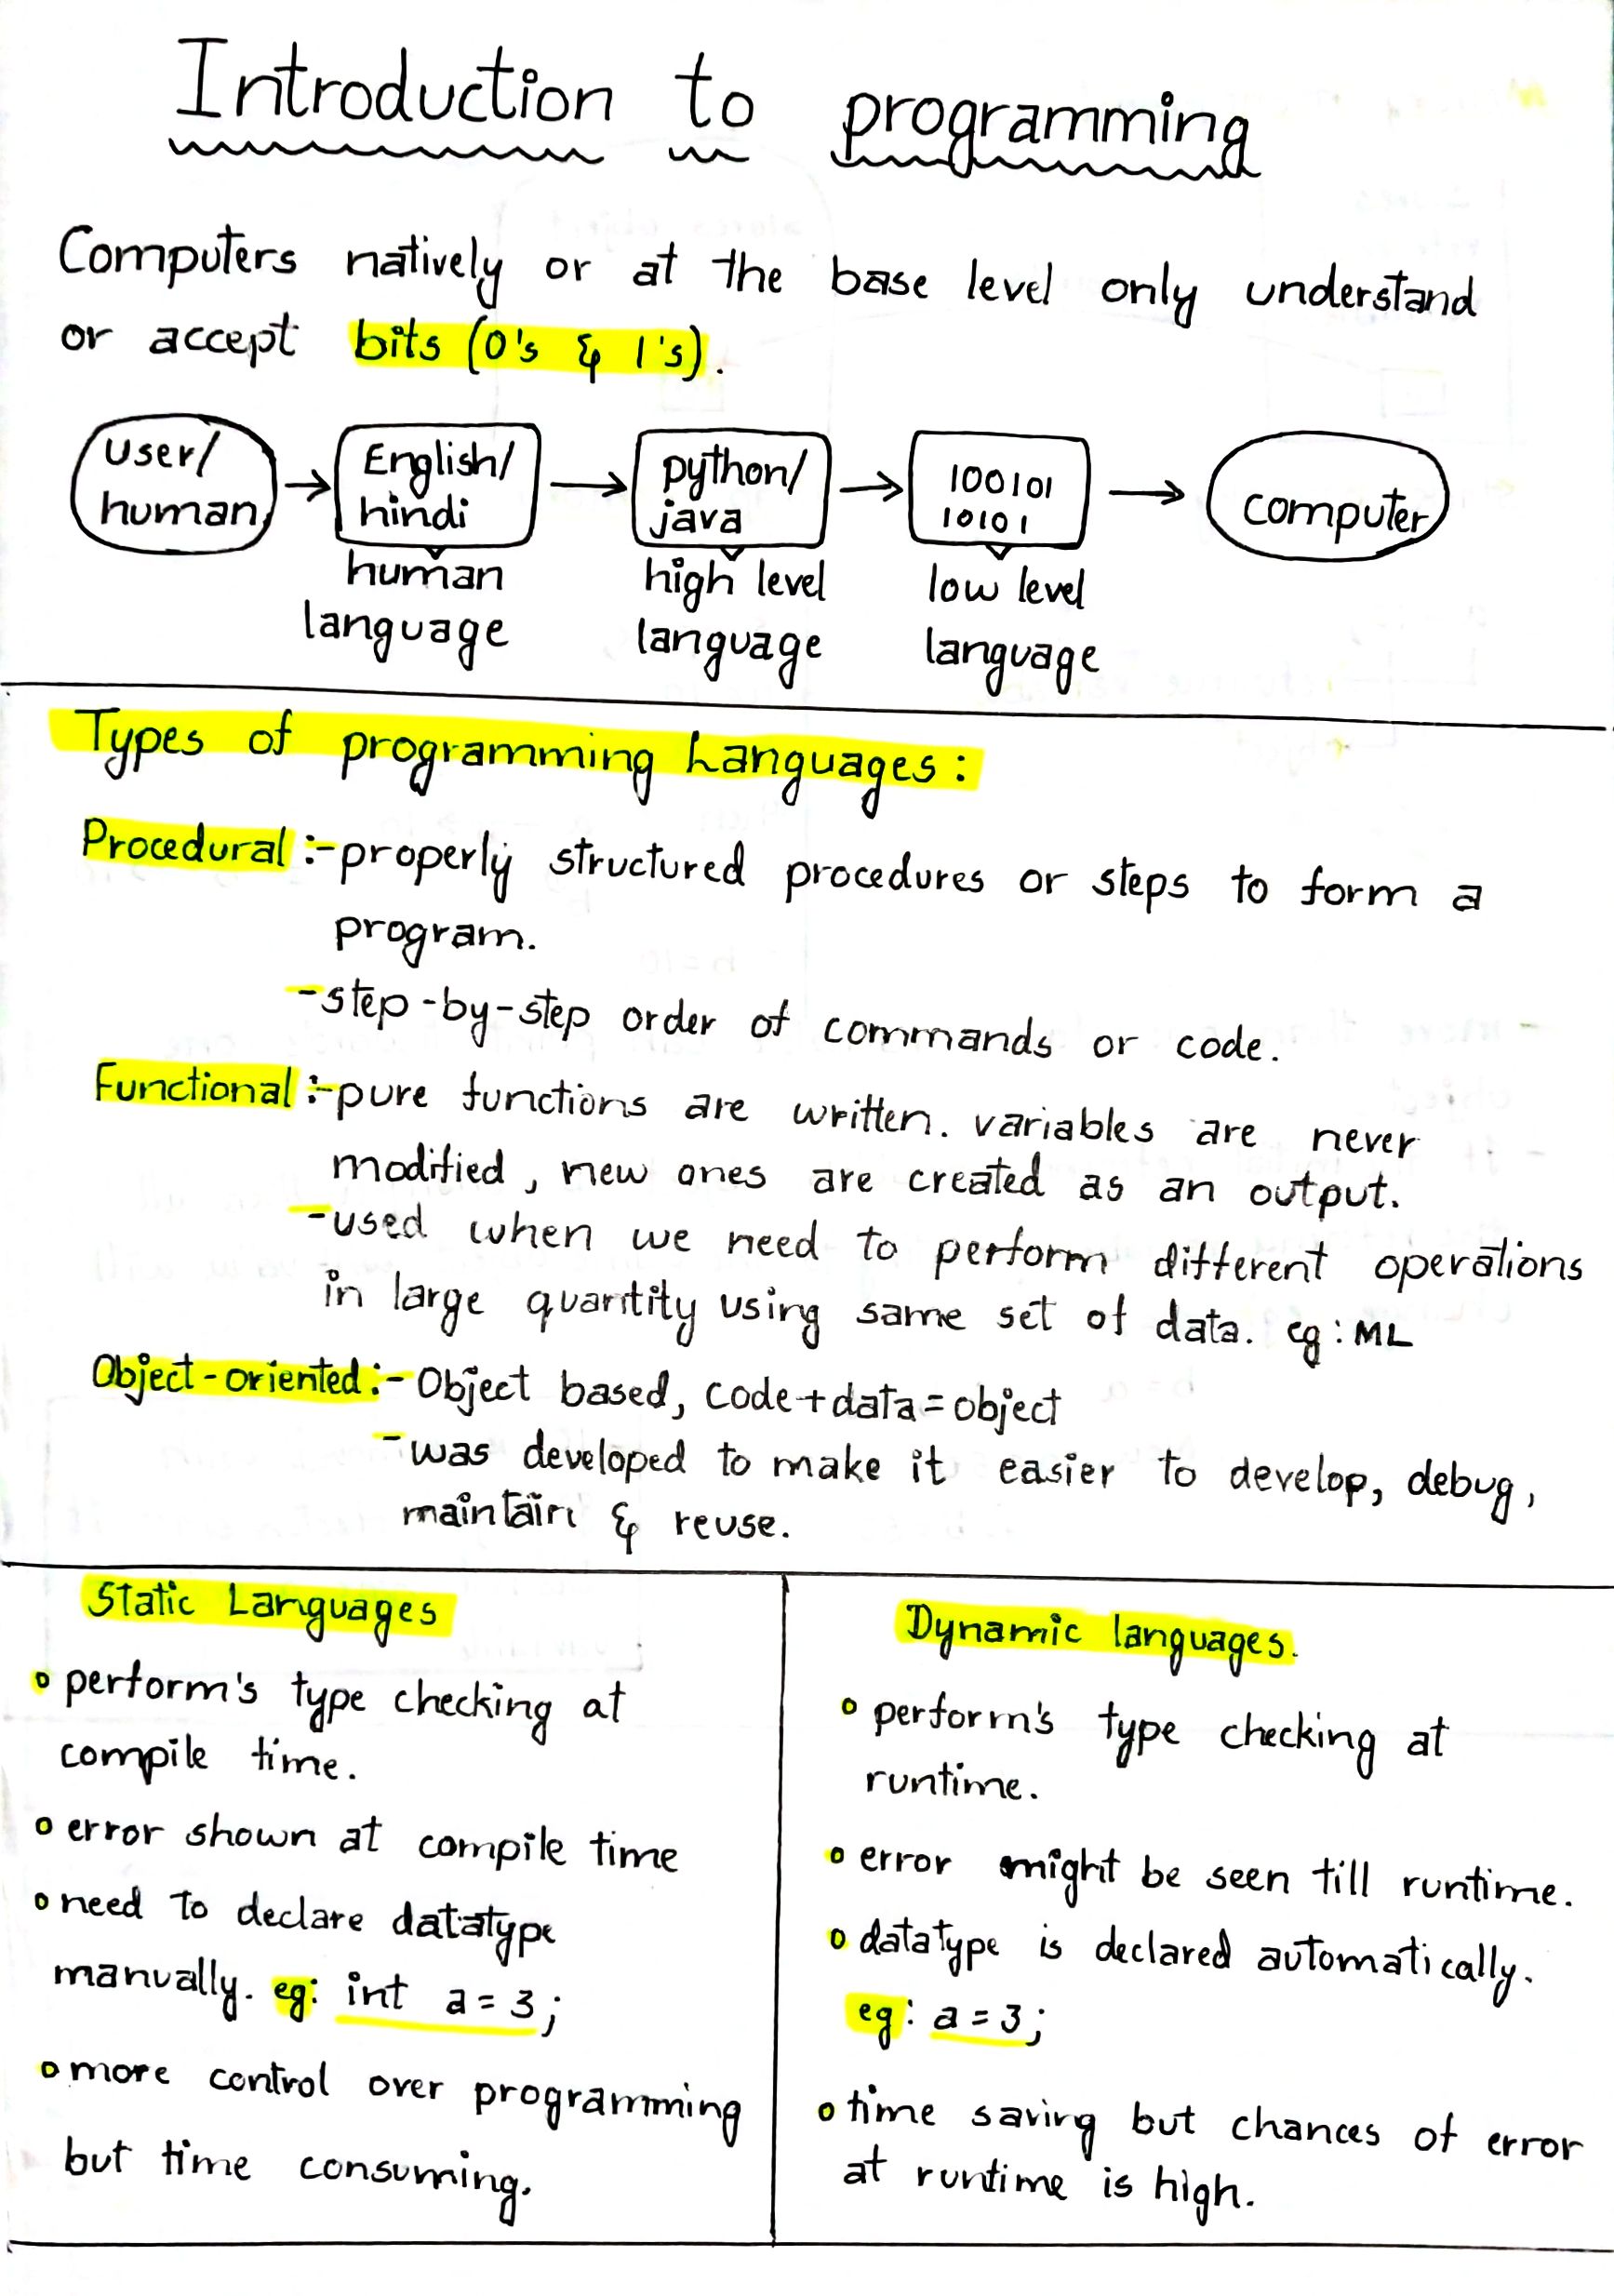 Introduction to programming
Computers natively or at the base level only understand
or accept bits (0's & 1's).
User/
human
English/
hindi
human
language
python/
java
high level
language
100101
10101
low level
language
computer
Types of programming Languages:
Procedural :- properly structured procedures or steps to form a
program.
- step-by-step order of commands or code.
Functional :- pure functions are written. variables are never
modified, new ones are created as an output.
- used when we need to perform different operations
in large quantity using same set of data. eg: ML
Object-oriented :- Object based, code+data=object
- was developed to make it easier to develop, debug,
maintain & reuse.
Static Languages
perform's type checking at
compile time.
error shown at compile time
need to declare datatype
manually. eg: int a = 3;
more control over programming
but time consuming.
Dynamic languages.
perform's type checking at
runtime.
error might be seen till runtime.
datatype is declared automatically.
eg: a = 3;
time saving but chances of error
at runtime is high.